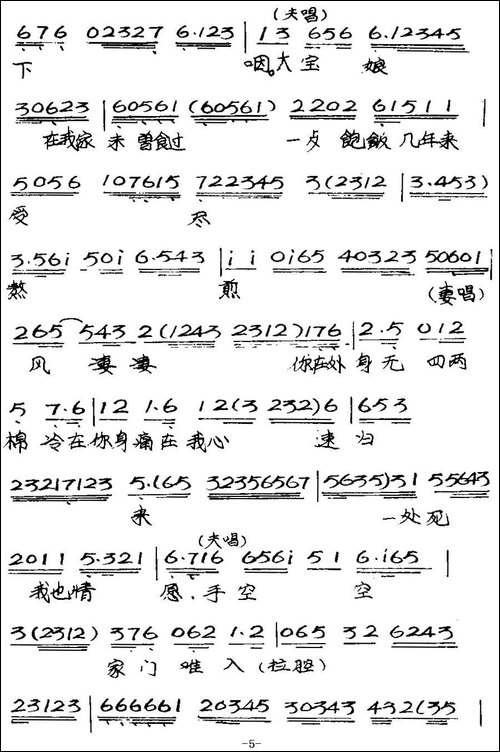 (夫唱)
676 02327 6.123 | 13 656 6.12345
下 咽。大宝 娘
30623 | 60561 (60561) 2202 61511 |
在我家 未曾食过 一点 饱饭 几年来
5056 107615 722345 3(2312 | 3.453)
受 尽
3.56i 50i 6.543 | i i 0i65 40323 50601 |
熬 煎 (妻唱)
265 543 2(1243 2312)176 | 2.5 012
风 凄凄 你在外 身无 四两
5 7.6 | 12 1.6 12(3 232)6 | 653
棉 冷在你身痛在 我心 速 归
23217123 5.(65 32356567 | 5635)31 55643
来 一处死
(夫唱)
2011 5.321 | 6.716 656i 51 6.i65 |
我也情 愿. 手 空 空
3(2312) 376 062 1.2 | 065 32 6243
家门 难 入 (拉腔)
23123 | 666661 20345 30343 432(35 |
-5-